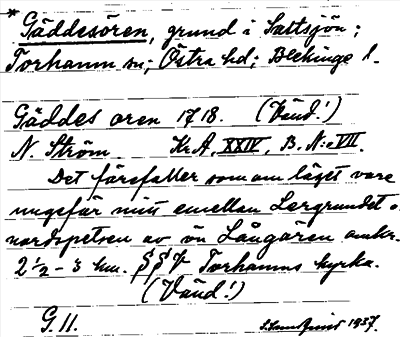 * Gäddesören, grund i Saltsjön;
Torhamn sn; Östra hd; Blekinge l.
Gäddes oren 1718. (Vänd!)
N. Ström. Kr.A, XXIV, B. N:o VII.
Det förefaller som om läget vore
ungefär mitt emellan Lergrundet o.
nordspetsen av ön Långören omkr.
2 1/2 - 3 km. SSV Torhamns kyrka.
(Vänd!)
G. 11. 1937.